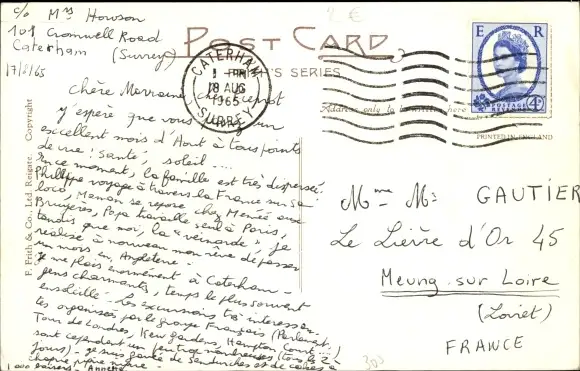 c/o Mrs Howson
101 Cromwell Road
Caterham (Surrey)
17/8/65
POST CARD
'S SERIES
CATERHAM
18 AUG
1965
SURREY
E R
POSTAGE
REVENUE
4D
PRINTED IN ENGLAND
Address only to be written here
F. Frith & Co., Ltd. Reigate. Copyright
Chère Marraine,
J'espère que vous un
excellent mois d'Août à tous points
de vue : santé, soleil ....
En ce moment, la famille est très dispersée.
Philippe voyage à travers la France sur sa
loco, Manon se repose chez Mémée aux
Bruyères, Papa travaille seul à Paris,
tandis que moi, la "veinarde", je
réalise à nouveau mon rêve de passer
un mois en Angleterre.
Je me plais énormément à Caterham -
gens charmants, temps le plus souvent
ensoleillé. Les excursions très intéressan-
tes organisées par le groupe Français (Parlement,
Tour de Londres, Kew gardens, Hampton Court...)
sont cependant un peu trop nombreuses (tous les 2
jours) - je suis gavée de sandwiches et de cakes à
chaque pique-nique -
1000 baisers - Annette
Mme - Mr GAUTIER
Le Lièvre d'Or 45
Meung sur Loire
(Loiret)
FRANCE
303
2 €